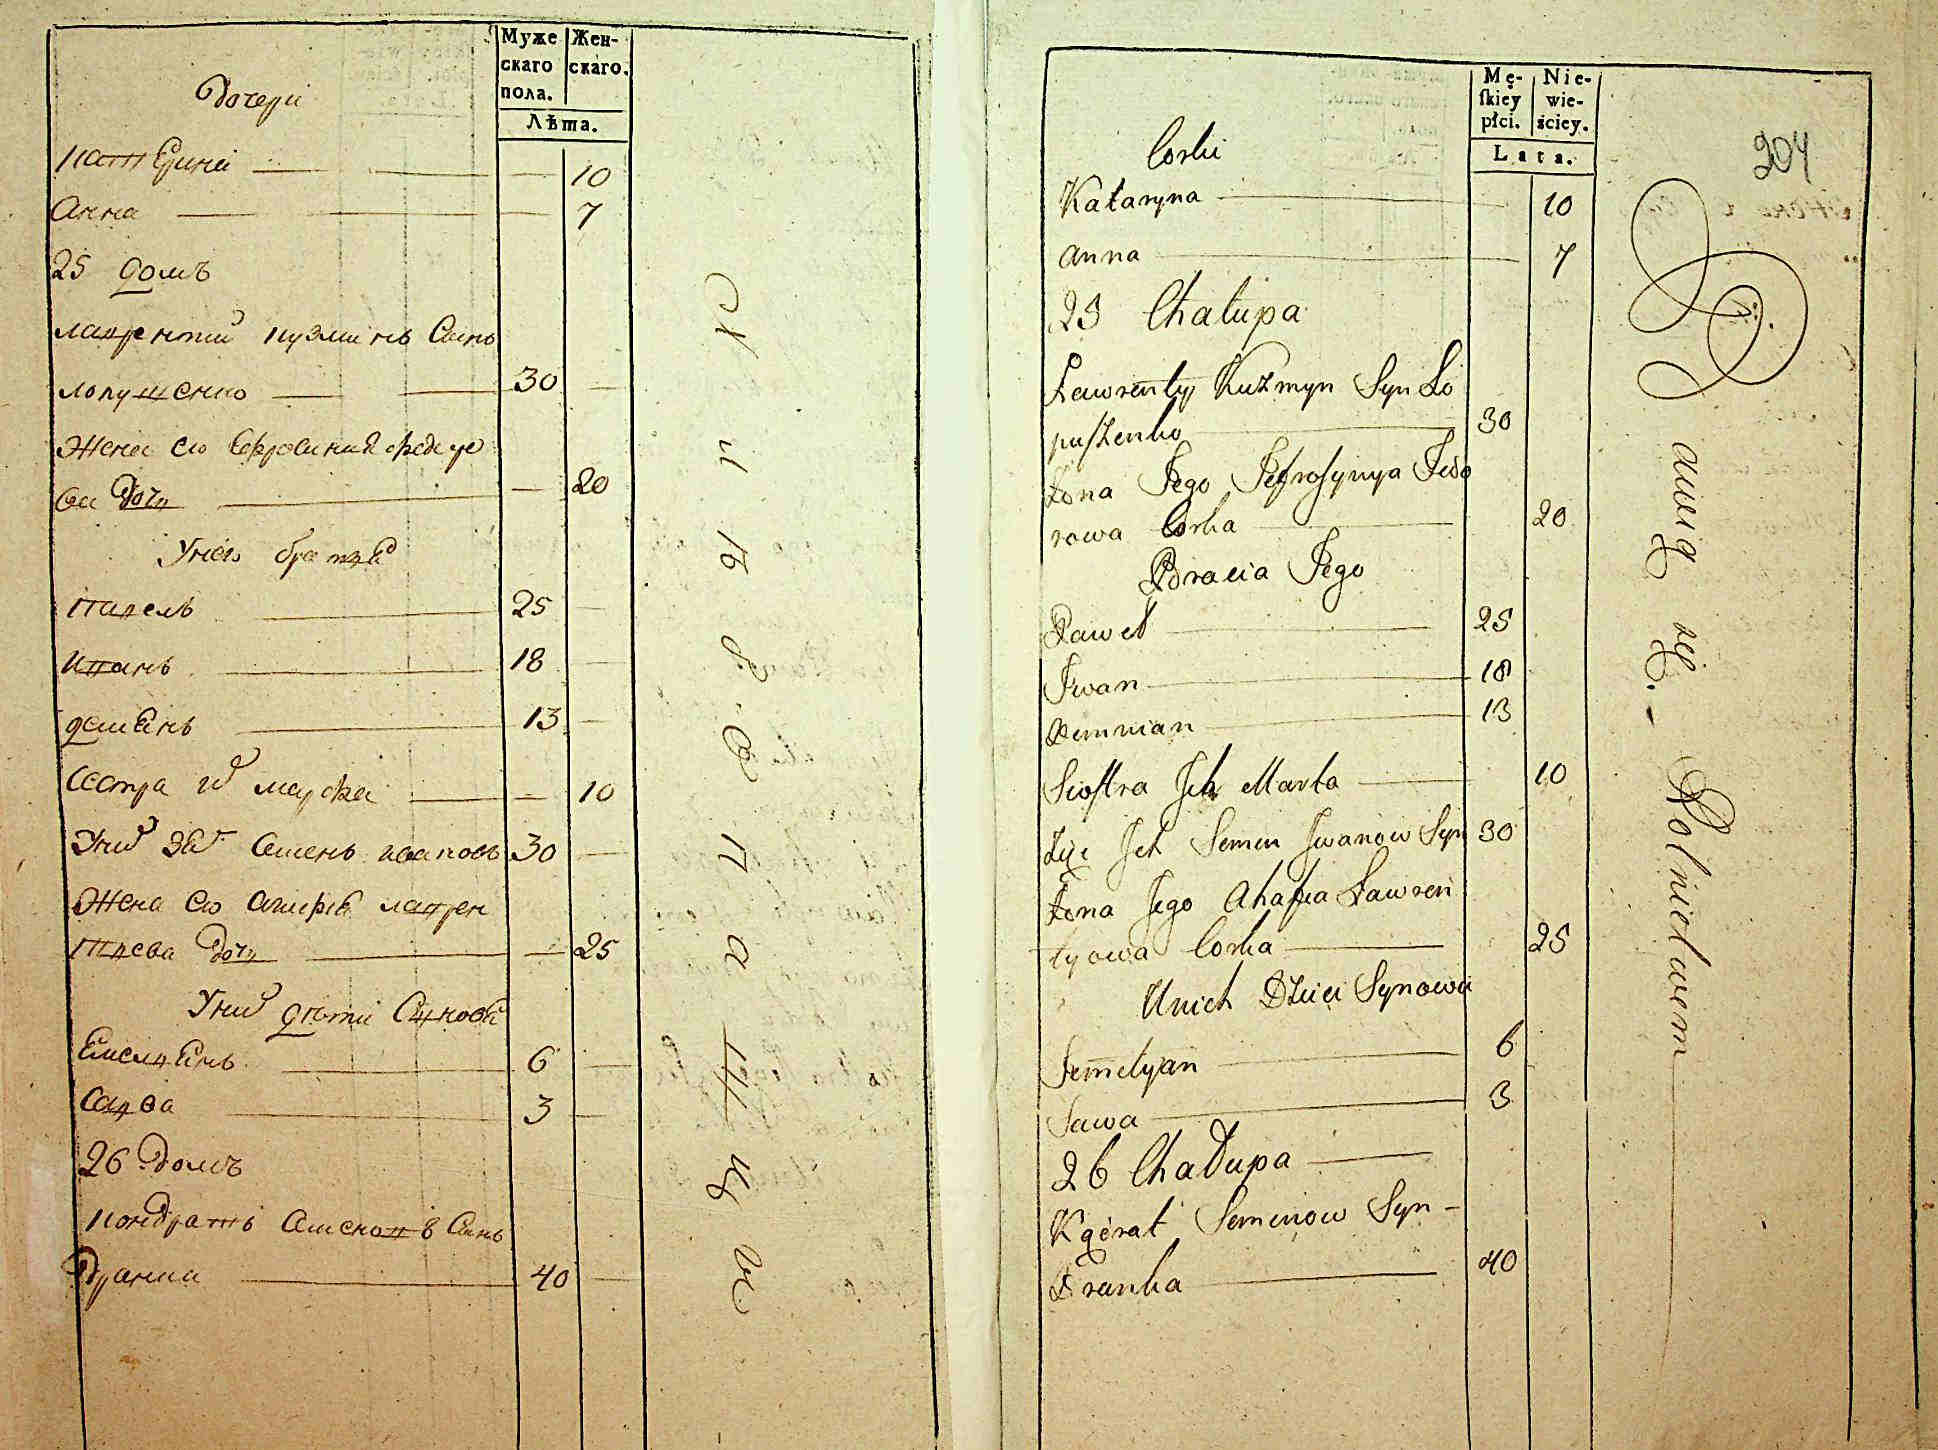 Муже
скаго
пола.
Жен-
скаго.
Лѣта.
Дочери
Катерина 10
Анна 7
25 домъ
Лаврентий Кузминъ Сынъ
Лопушенко 30
Жена его Ефросиния Федоро
ва Дочь 20
У него братья
Павелъ 25
Иванъ 18
Демянъ 13
Сестра их Марфа 10
У них зять Семенъ Ивановъ 30
Жена его Агафия Лаврен
тиева Дочь 25
У них дети Сыновья
Емельянъ 6
Савва 3
26 Домъ
Кондратъ Семеновъ Сынъ
Дранка 40
Mę-
ſkiey
płci.
Nie-
wie-
ściey.
Lata.
204
Corki
Kataryna 10
Anna 7
25 Chałupa
Ławrenty Kuzmyn Syn Ło
puſzenko 30
Żona Jego Jefrosynya Fedo
rowa Corka 20
Bracia Jego
Paweł 25
Iwan 18
Demnian 13
Sioſtra Ich Marta 10
Zięć Ich Semen Iwanow Syn 30
Żona Jego Ahafia Ławren
tyowa Corka 25
U nich Dzieci Synowie
Jemelyan 6
Sawa 3
26 Chałupa
Kądrat Semenow Syn
Dranka 40
awią się. Rolnictwem